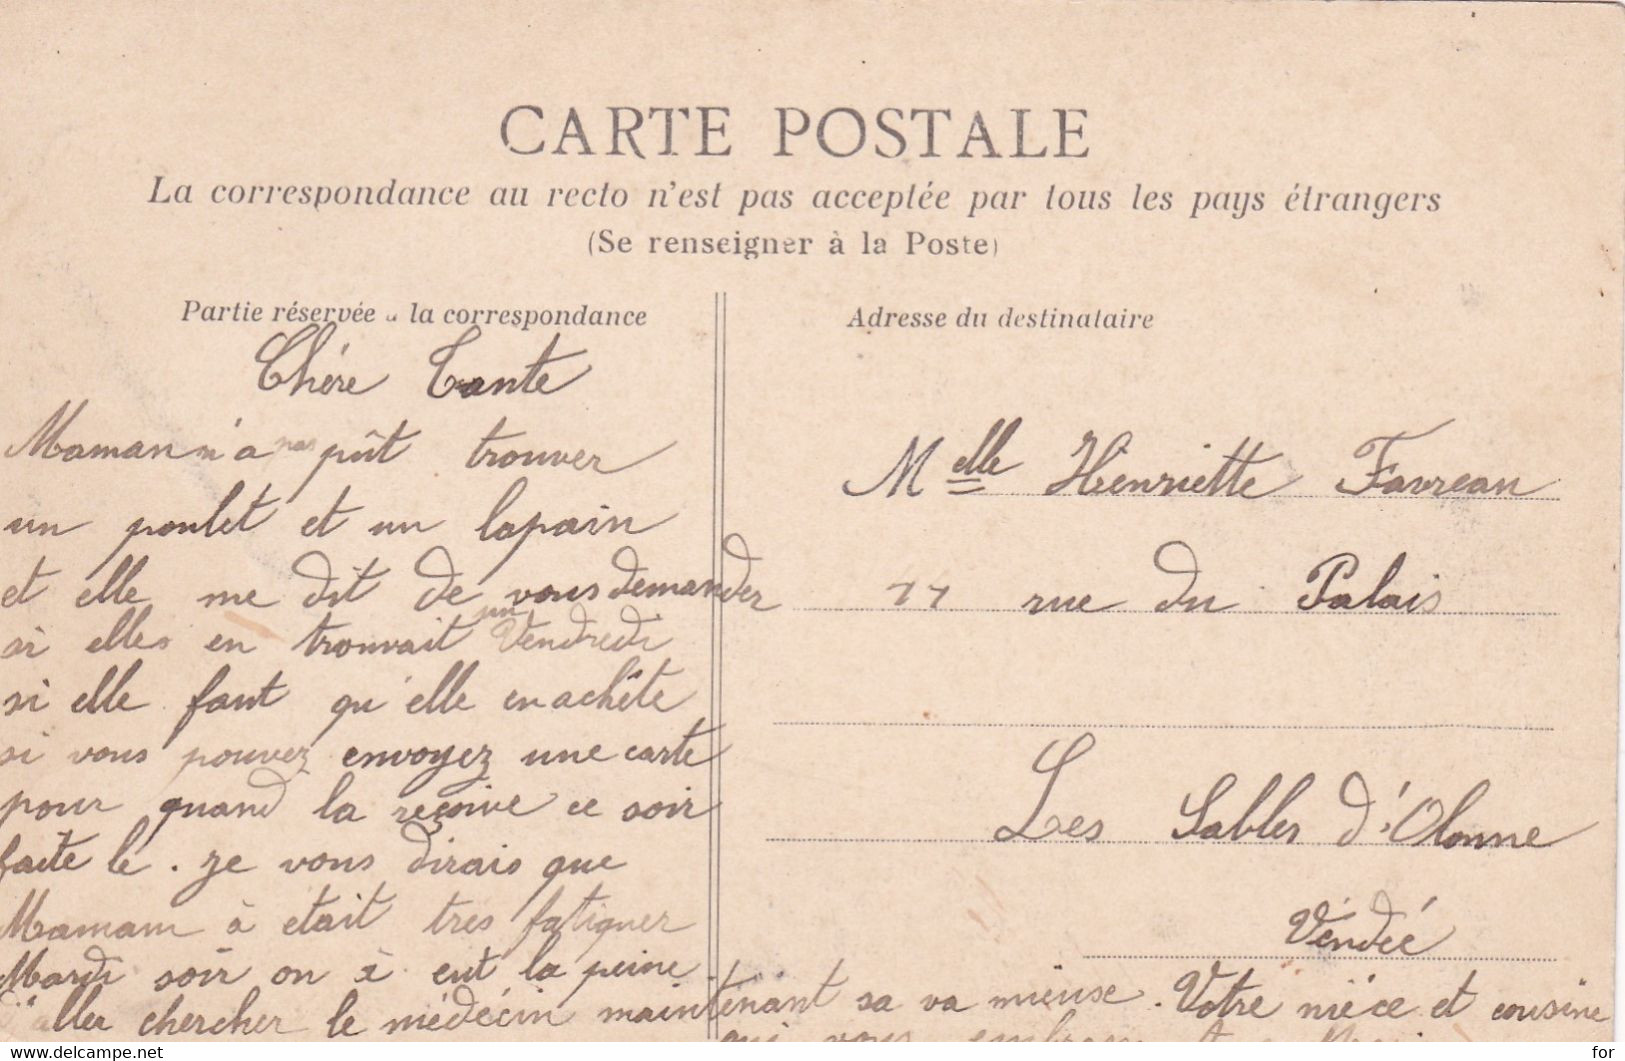 CARTE POSTALE
La correspondance au recto n'est pas acceptée par tous les pays étrangers
(Se renseigner à la Poste)
Partie réservée à la correspondance
Chére Tante
Maman n'a pas pût trouver
un poulet et un lapain
et elle me dit de vous demander
si elles en trouvait un Vendredi
si elle faut qu'elle en achête
si vous pouvez envoyez une carte
pour quand la reçoive ce soir
faite lé. je vous dirais que
Mamam à était tres fatiguer
Mardi soir on à eut la peine
d'aller chercher le médécin maintenant sa va mieuse. Votre niéce et cousine
qui vous embrasse
Adresse du destinataire
Melle Henriette Favreau
77 rue du Palais
Les Sables d'Olonne
Vendée
www.delcampe.net
for